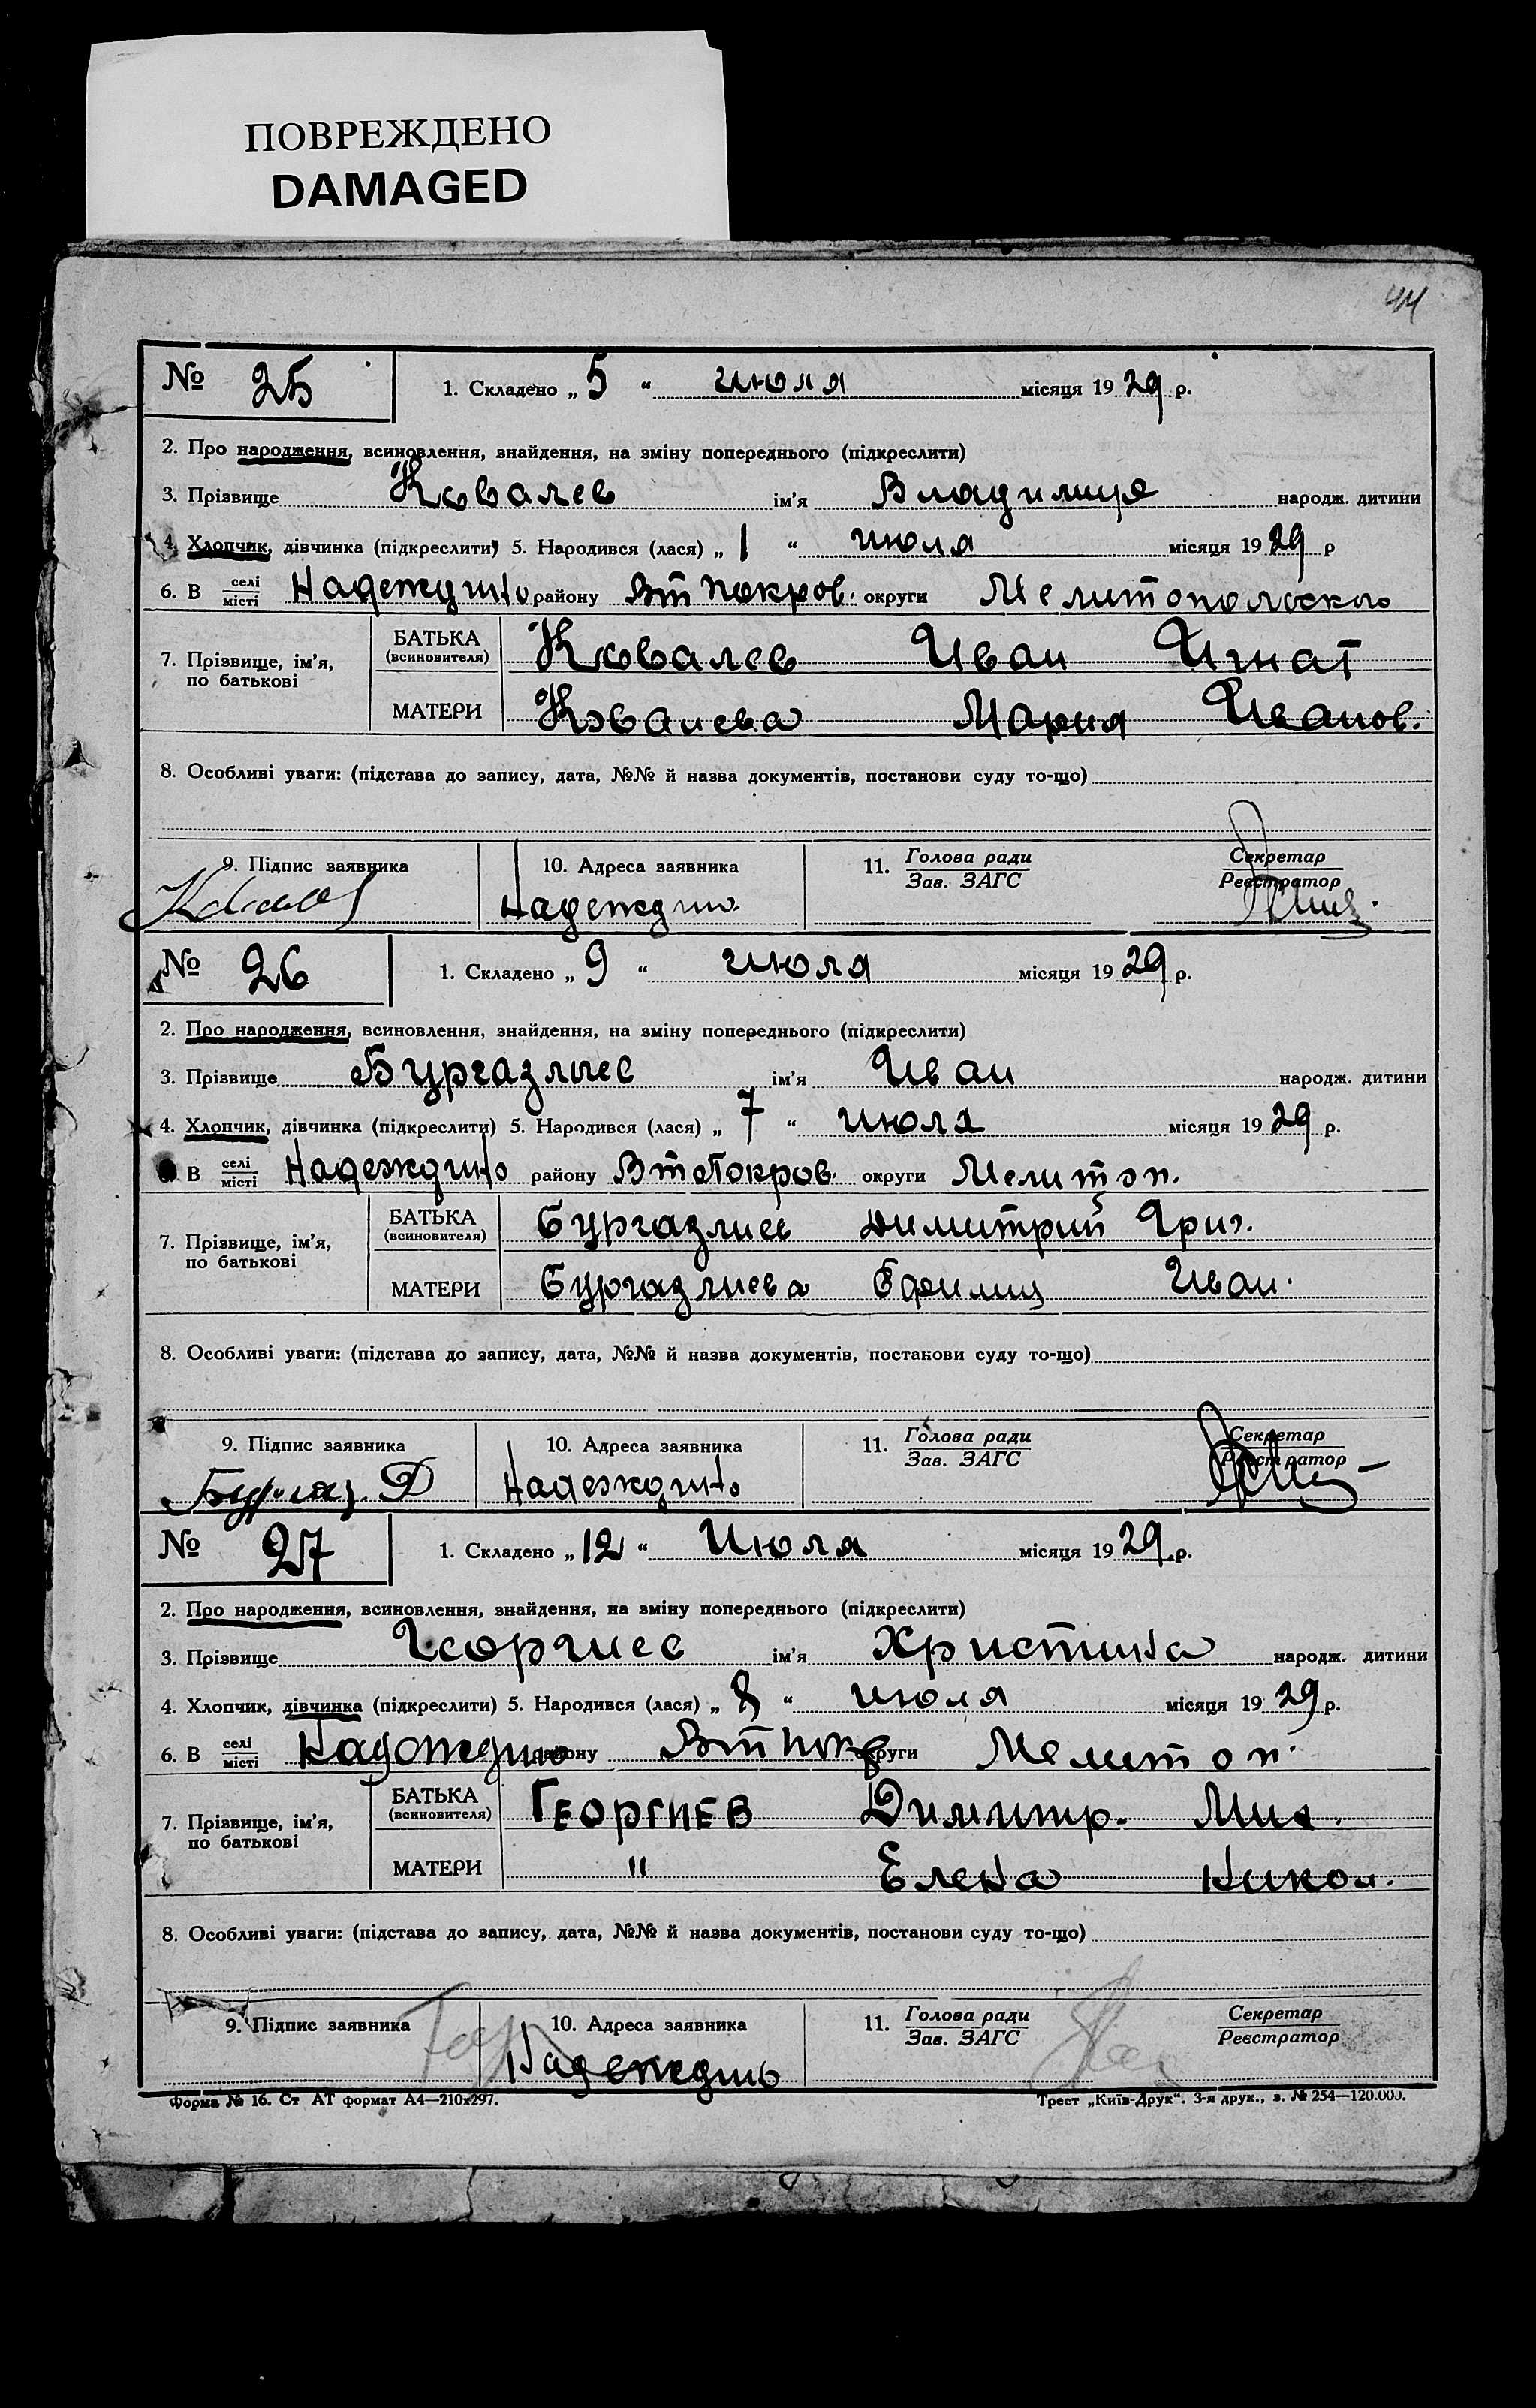 ПОВРЕЖДЕНО
DAMAGED
44
№ 25 1. Складено „ 5 “ июля місяця 1929 р.
2. Про народження, всиновлення, знайдення, на зміну попереднього (підкреслити)
3. Прізвище Ковалев ім’я Владимир народж. дитини
4. Хлопчик, дівчинка (підкреслити) 5. Народився (лася) „ 1 “ июля місяця 1929 р
6. В селі місті Надеждино району Вт Покров. округи Мелитопольского
7. Прізвище, ім’я, по батькові
БАТЬКА (всиновителя) Ковалев Иван Игнат
МАТЕРИ Ковалева Мария Иванов.
8. Особливі уваги: (підстава до запису, дата, №№ й назва документів, постанови суду то-що)
9. Підпис заявника 10. Адреса заявника 11. Голова ради Зав. ЗАГС Секретар Реєстратор
Надеждино
№ 26 1. Складено „ 9 “ июля місяця 1929 р.
2. Про народження, всиновлення, знайдення, на зміну попереднього (підкреслити)
3. Прізвище Бургазлиев ім’я Иван народж. дитини
4. Хлопчик, дівчинка (підкреслити) 5. Народився (лася) „ 7 “ июля місяця 1929 р.
В селі місті Надеждино району Вт Покров. округи Мелитоп.
7. Прізвище, ім’я, по батькові
БАТЬКА (всиновителя) Бургазлиев Димитрий Григ.
МАТЕРИ Бургазлиева Ефимия Иван.
8. Особливі уваги: (підстава до запису, дата, №№ й назва документів, постанови суду то-що)
9. Підпис заявника 10. Адреса заявника 11. Голова ради Зав. ЗАГС Секретар Реєстратор
Бургаз. Д Надеждино
№ 27 1. Складено „ 12 “ Июля місяця 1929 р.
2. Про народження, всиновлення, знайдення, на зміну попереднього (підкреслити)
3. Прізвище Георгиев ім’я Христина народж. дитини
4. Хлопчик, дівчинка (підкреслити) 5. Народився (лася) „ 8 “ июля місяця 1929 р.
6. В селі місті Надеждино району Вт Покр округи Мелитоп.
7. Прізвище, ім’я, по батькові
БАТЬКА (всиновителя) Георгиев Димитр. Мих.
МАТЕРИ " Елена Никол.
8. Особливі уваги: (підстава до запису, дата, №№ й назва документів, постанови суду то-що)
9. Підпис заявника 10. Адреса заявника 11. Голова ради Зав. ЗАГС Секретар Реєстратор
Надеждино
Форма № 16. Ст АТ формат А4—210х297. Трест „Київ-Друк“. 3-я друк., з. № 254—120.000.